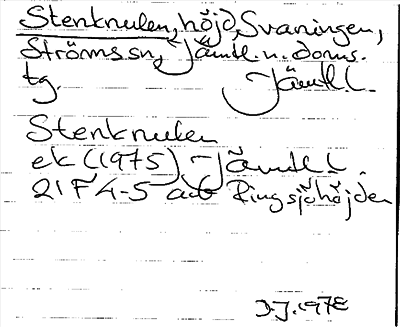 Stenknulen, höjd, Svaningen,
Ströms sn, Jämtl. n. doms.
tg. Jämtl. l.
Stenknulen
ek (1975) Jämtl. l.
21 F 4-5 ab Ringsjöhöjden
D.J. 1978